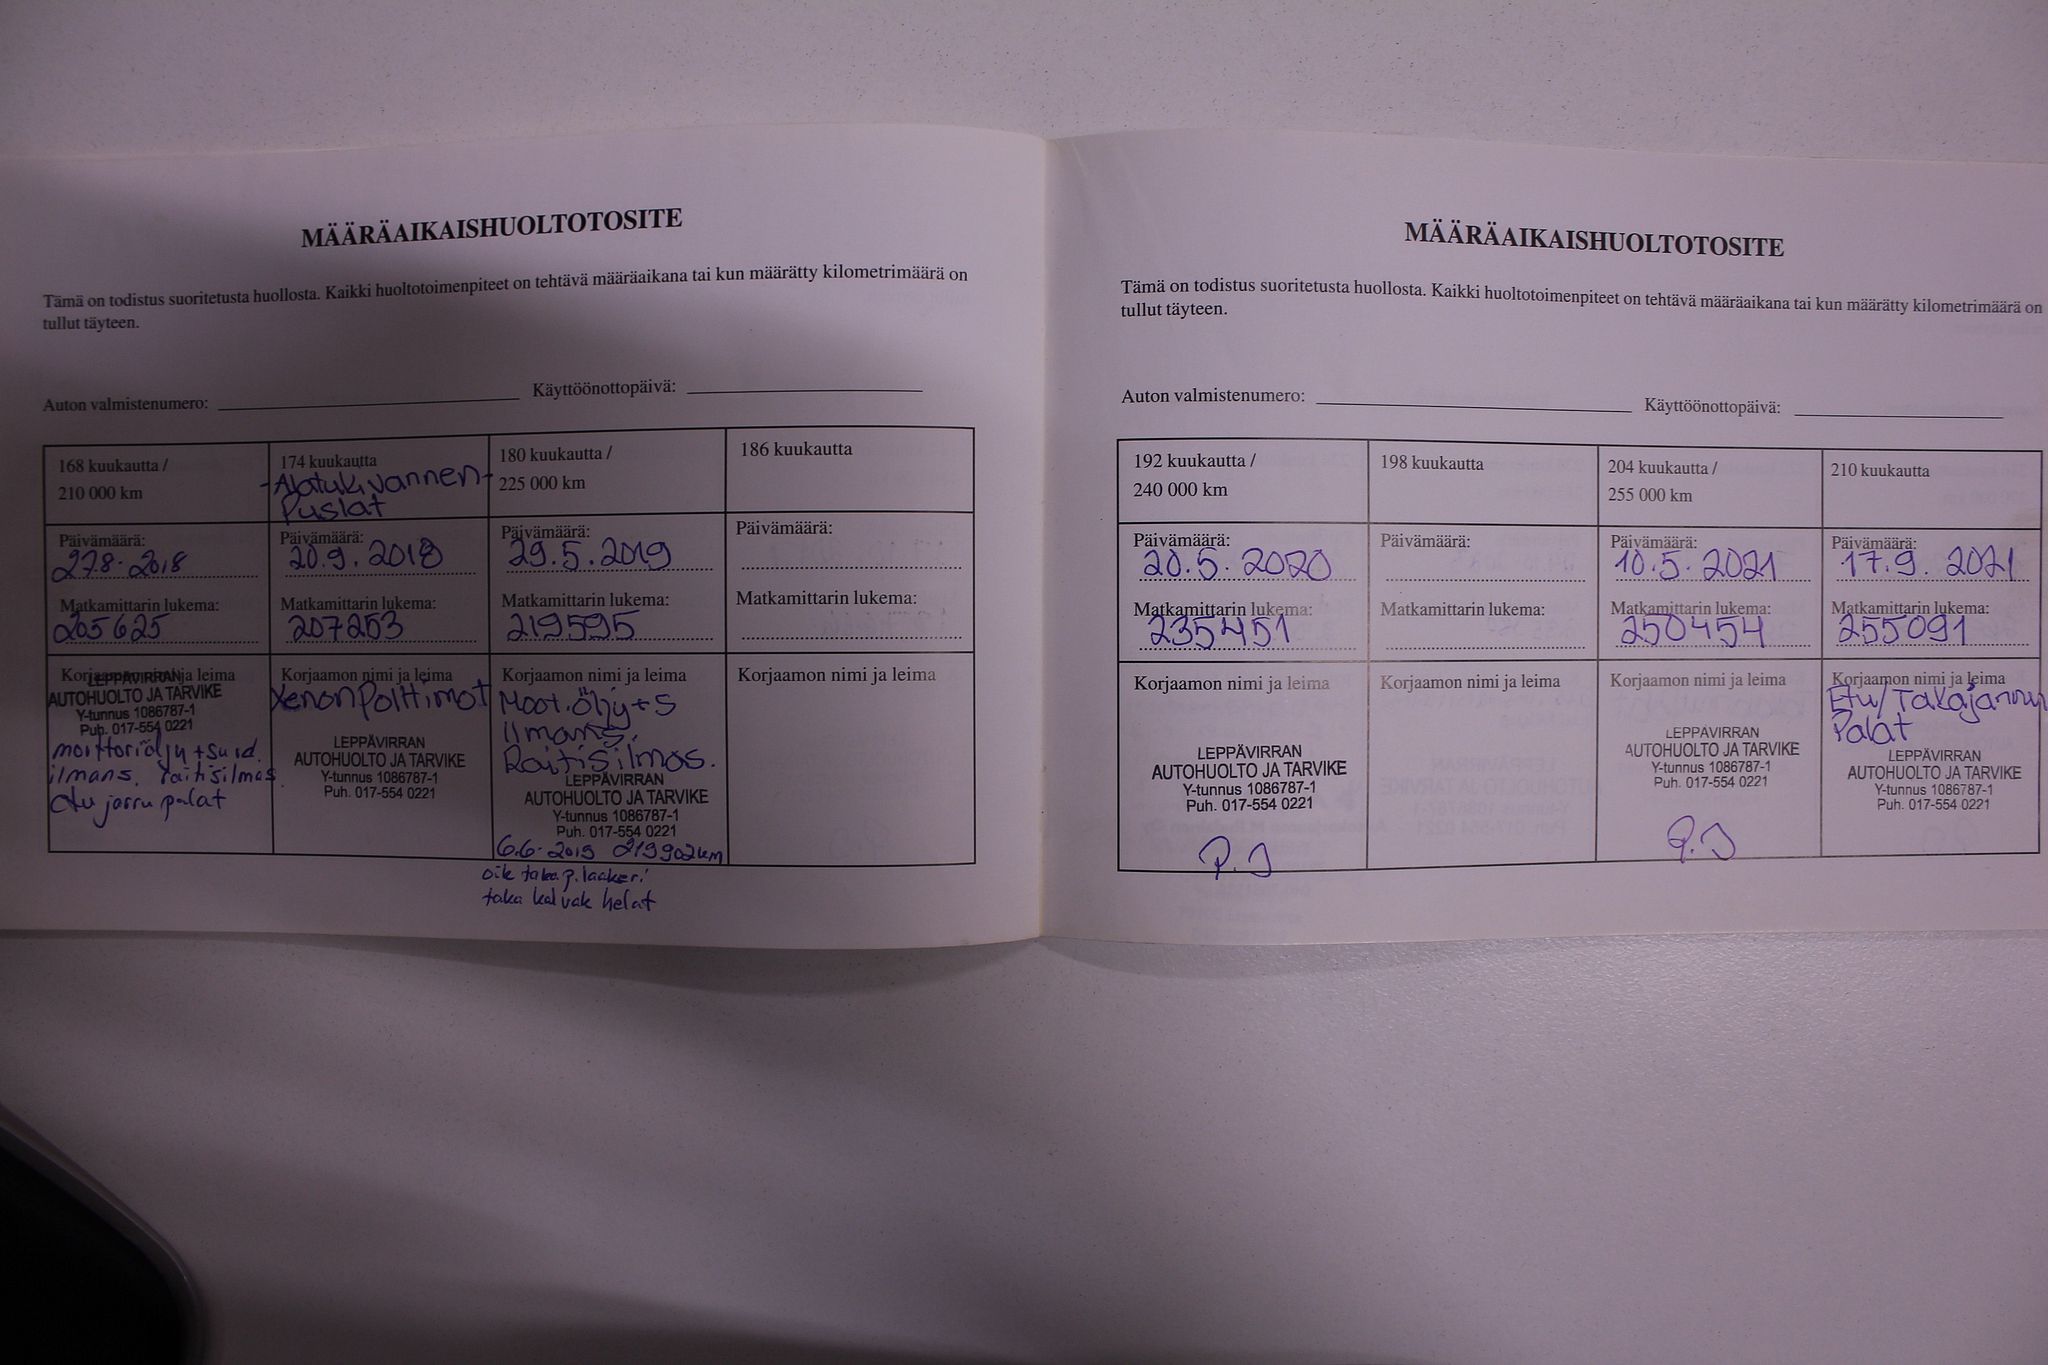 MÄÄRÄAIKAISHUOLTOTOSITE
Tämä on todistus suoritetusta huollosta. Kaikki huoltotoimenpiteet on tehtävä määräaikana tai kun määrätty kilometrimäärä on
tullut täyteen.
Auton valmistenumero:
Käyttöönottopäivä:
168 kuukautta /
210 000 km
Päivämäärä:
27.8.2018
Matkamittarin lukema:
205625
Korjaamon nimi ja leima
LEPPÄVIRRAN
AUTOHUOLTO JA TARVIKE
Y-tunnus 1086787-1
Puh. 017-554 0221
moottoriöljy + suod.
ilmans. raitisilmas.
etu jarru palat
174 kuukautta
-Alatukivannen-
Puslat
Päivämäärä:
20.9.2018
Matkamittarin lukema:
207253
Korjaamon nimi ja leima
Xenon Polttimot
LEPPÄVIRRAN
AUTOHUOLTO JA TARVIKE
Y-tunnus 1086787-1
Puh. 017-554 0221
180 kuukautta /
225 000 km
Päivämäärä:
29.5.2019
Matkamittarin lukema:
219595
Korjaamon nimi ja leima
Moot.öljy+S
Ilmans.
Raitisilmas.
LEPPÄVIRRAN
AUTOHUOLTO JA TARVIKE
Y-tunnus 1086787-1
Puh. 017-554 0221
6.6.2019 219902km
oik taka p. laakeri
taka kal vak helat
186 kuukautta
Päivämäärä:
Matkamittarin lukema:
Korjaamon nimi ja leima
MÄÄRÄAIKAISHUOLTOTOSITE
Tämä on todistus suoritetusta huollosta. Kaikki huoltotoimenpiteet on tehtävä määräaikana tai kun määrätty kilometrimäärä on
tullut täyteen.
Auton valmistenumero:
Käyttöönottopäivä:
192 kuukautta /
240 000 km
Päivämäärä:
20.5.2020
Matkamittarin lukema:
235451
Korjaamon nimi ja leima
LEPPÄVIRRAN
AUTOHUOLTO JA TARVIKE
Y-tunnus 1086787-1
Puh. 017-554 0221
P.J
198 kuukautta
Päivämäärä:
Matkamittarin lukema:
Korjaamon nimi ja leima
204 kuukautta /
255 000 km
Päivämäärä:
10.5.2021
Matkamittarin lukema:
250454
Korjaamon nimi ja leima
LEPPÄVIRRAN
AUTOHUOLTO JA TARVIKE
Y-tunnus 1086787-1
Puh. 017-554 0221
P.J
210 kuukautta
Päivämäärä:
17.9. 2021
Matkamittarin lukema:
255091
Korjaamon nimi ja leima
Etu/Takajarru
Palat
LEPPÄVIRRAN
AUTOHUOLTO JA TARVIKE
Y-tunnus 1086787-1
Puh. 017-554 0221